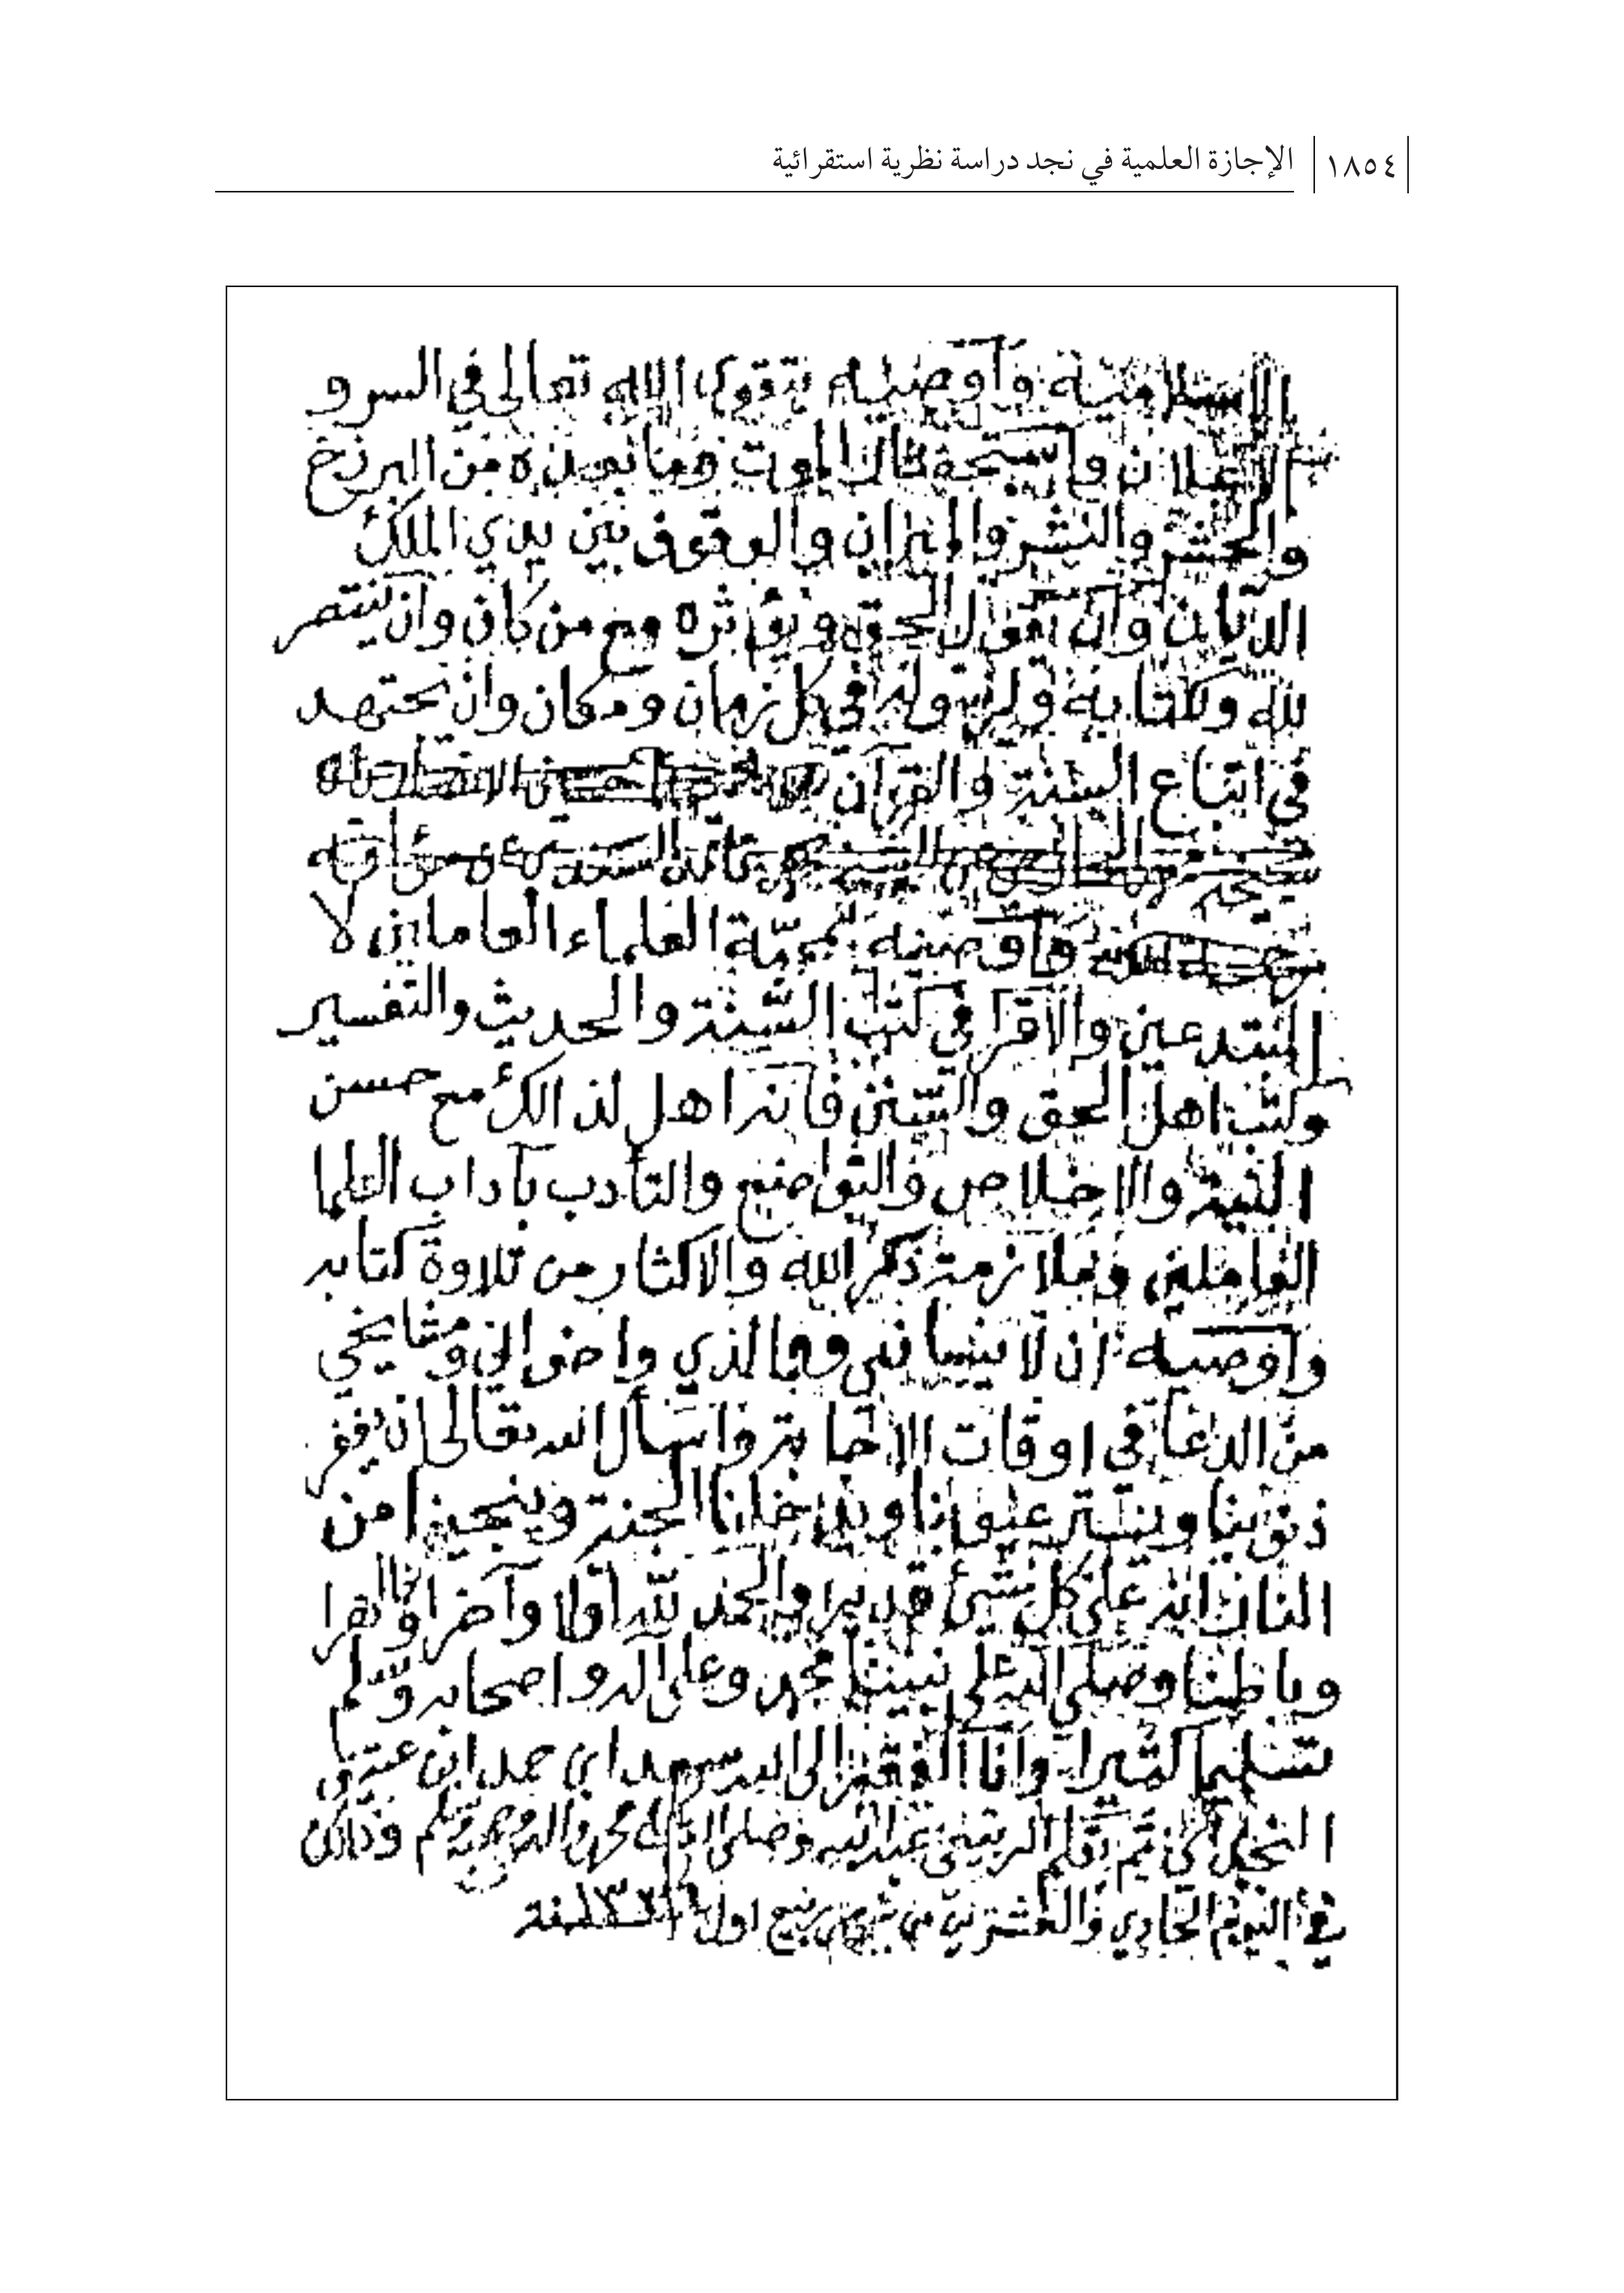 ١٨٥٤ الإجازة العلمية في نجد دراسة نظرية استقرائية
الاسلامية وأوصيه بتقوى الله تعالى في السر و
الاعلان والموت وما بعده من البرزخ
والحشر والنشر والميزان والوقوف بين يدي الملك
الديان وأن يقول الحق ويؤثره مع من كان وأن ينتصر
لله ولكتابه ولرسوله في كل زمان ومكان وان يجتهد
في اتباع السنة والقرآن
وأوصيه العلماء العاملين لا
المبتدعين والاقرا في كتب السنة والحديث والتفسير
وكتب اهل الحق والسنن فانه اهل لذالك مع حسن
النية والاخلاص والتواضع والتأدب بآداب العلما
العاملين وبملازمة ذكر الله والاكثار من تلاوة كتابه
وأوصيه ان لا ينساني ووالدي واخواني ومشايخي
من الدعا في اوقات الاجابة واسأل الله تعالى ان يغفر
ذنوبنا ويستر عيوبنا ويدخلنا الجنة وينجينا من
النار انه على كل شئ قدير والحمد لله أولا وآخرا وظاهرا
وباطنا وصلى الله على نبينا محمد وعلى آله واصحابه وسلم
تسليما كثيرا وانا الفقير الى الله سعد ابن حمد ابن عتيق
النجدي وصلى الله على محمد واله وصحبه وسلم وذالك
في اليوم الحادي والعشرين من شهر ربيع اول سنة